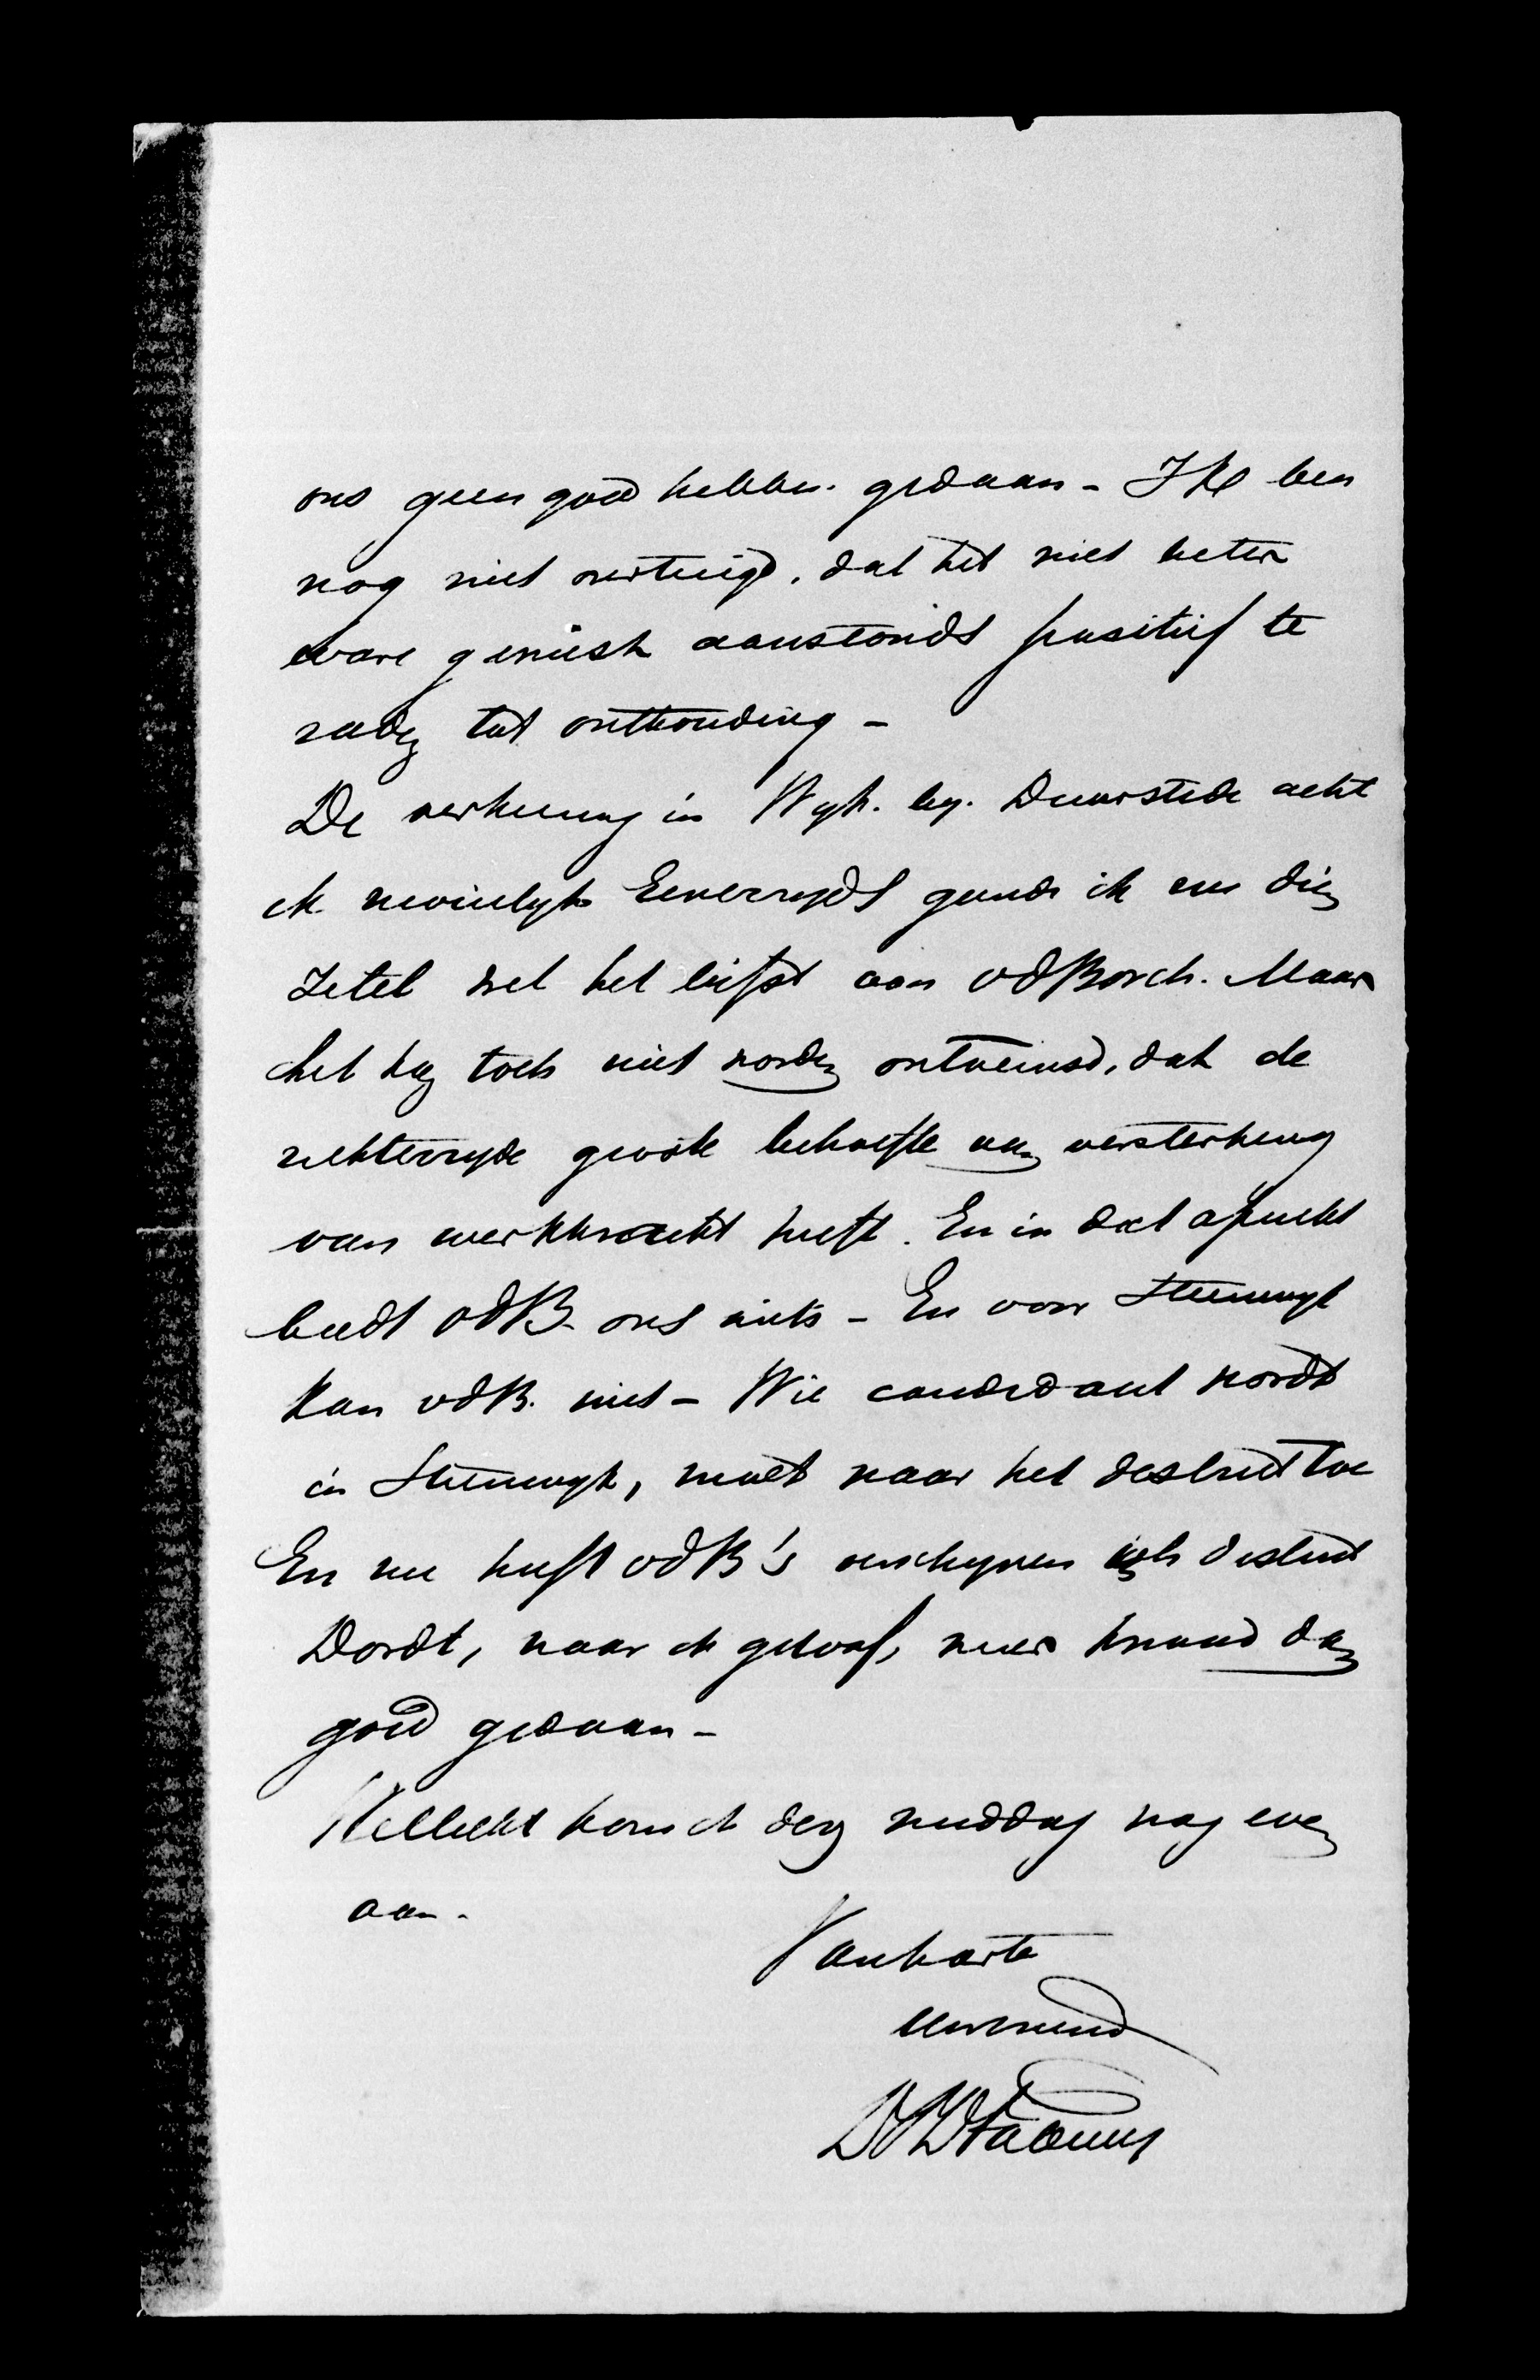 ons geen goed hebben gedaan - Ik ben
nog niet overtuigd, dat het niet beter
ware geweest aanstonds positief te
raden tot onthouding -
De verkiezing in Wyk. by. Duurstede acht
ik moeielyk Eenerzyds gunde ik nu dien
Zetel wel het liefst aan vdBorch. Maar
het kan toch niet worden ontveinsd, dat de
rechterzyde groote behoefte aan versterking
van werkkracht heeft. En in dat opzicht
biedt vdB. ons niets - En voor Steenwyk
kan vdB. niet - Wie candidaat wordt
in Steenwyk, moet naar het district toe
En nu heeft vdB's verschynen in 't district
Dordt, naar ik geloof, meer kwaad dan
goed gedaan -
Wellicht kom ik dezen middag nog even
aan.
Van harte
uw vriend
DPDFabius